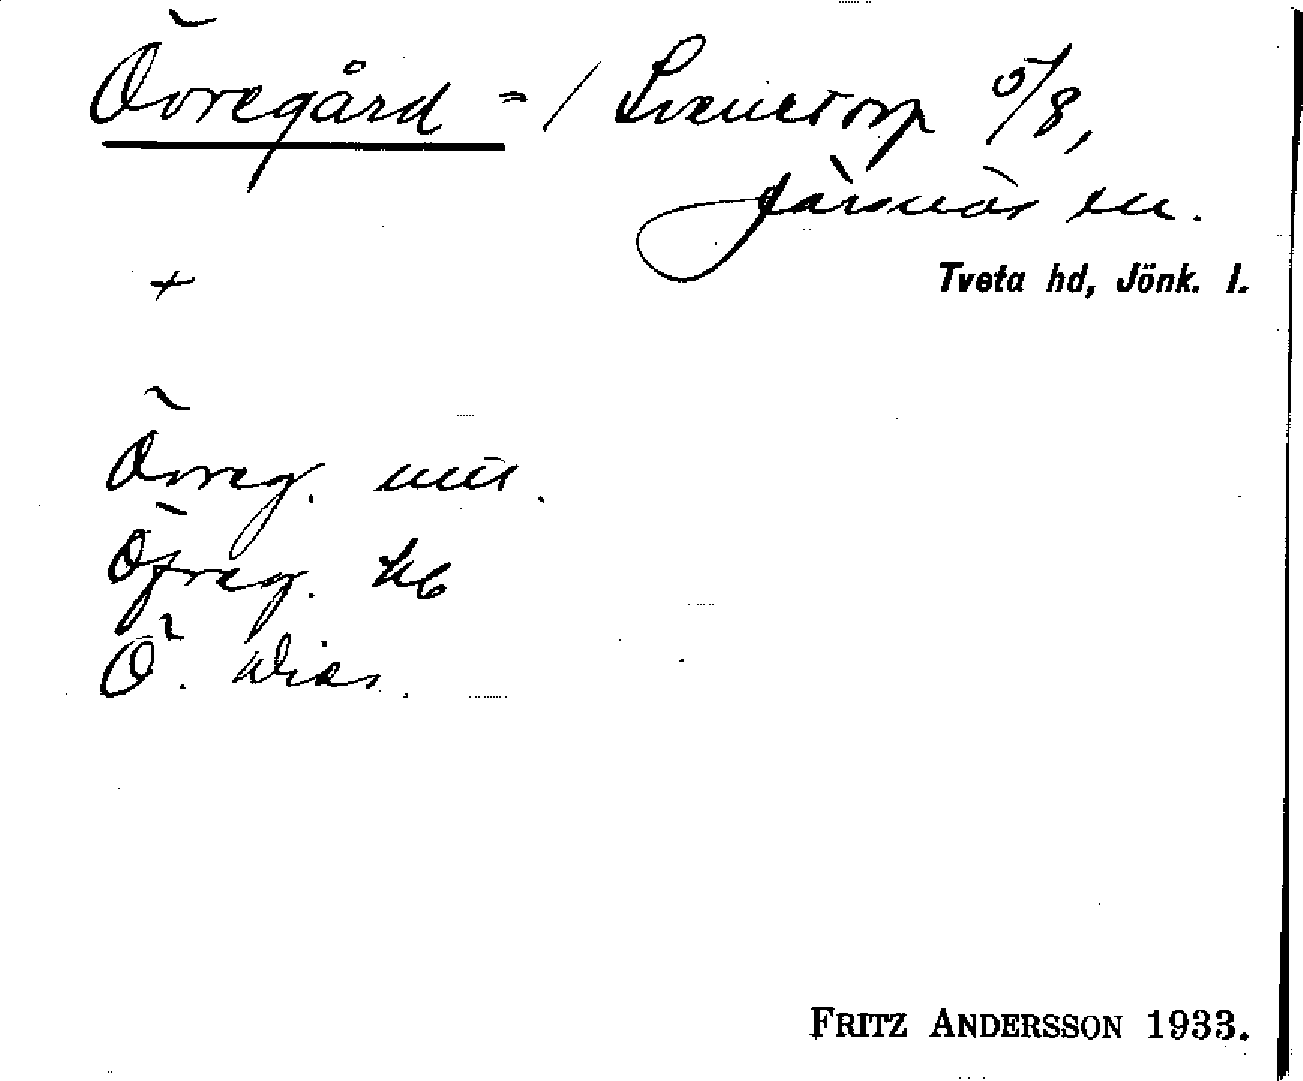 Övregård = / Svenstorp 5/8,
Järsnäs sn.
+
Tveta hd, Jönk. l.
Övreg. mil.
Öfreg. kb
Ö. dias.
FRITZ ANDERSSON 1933.